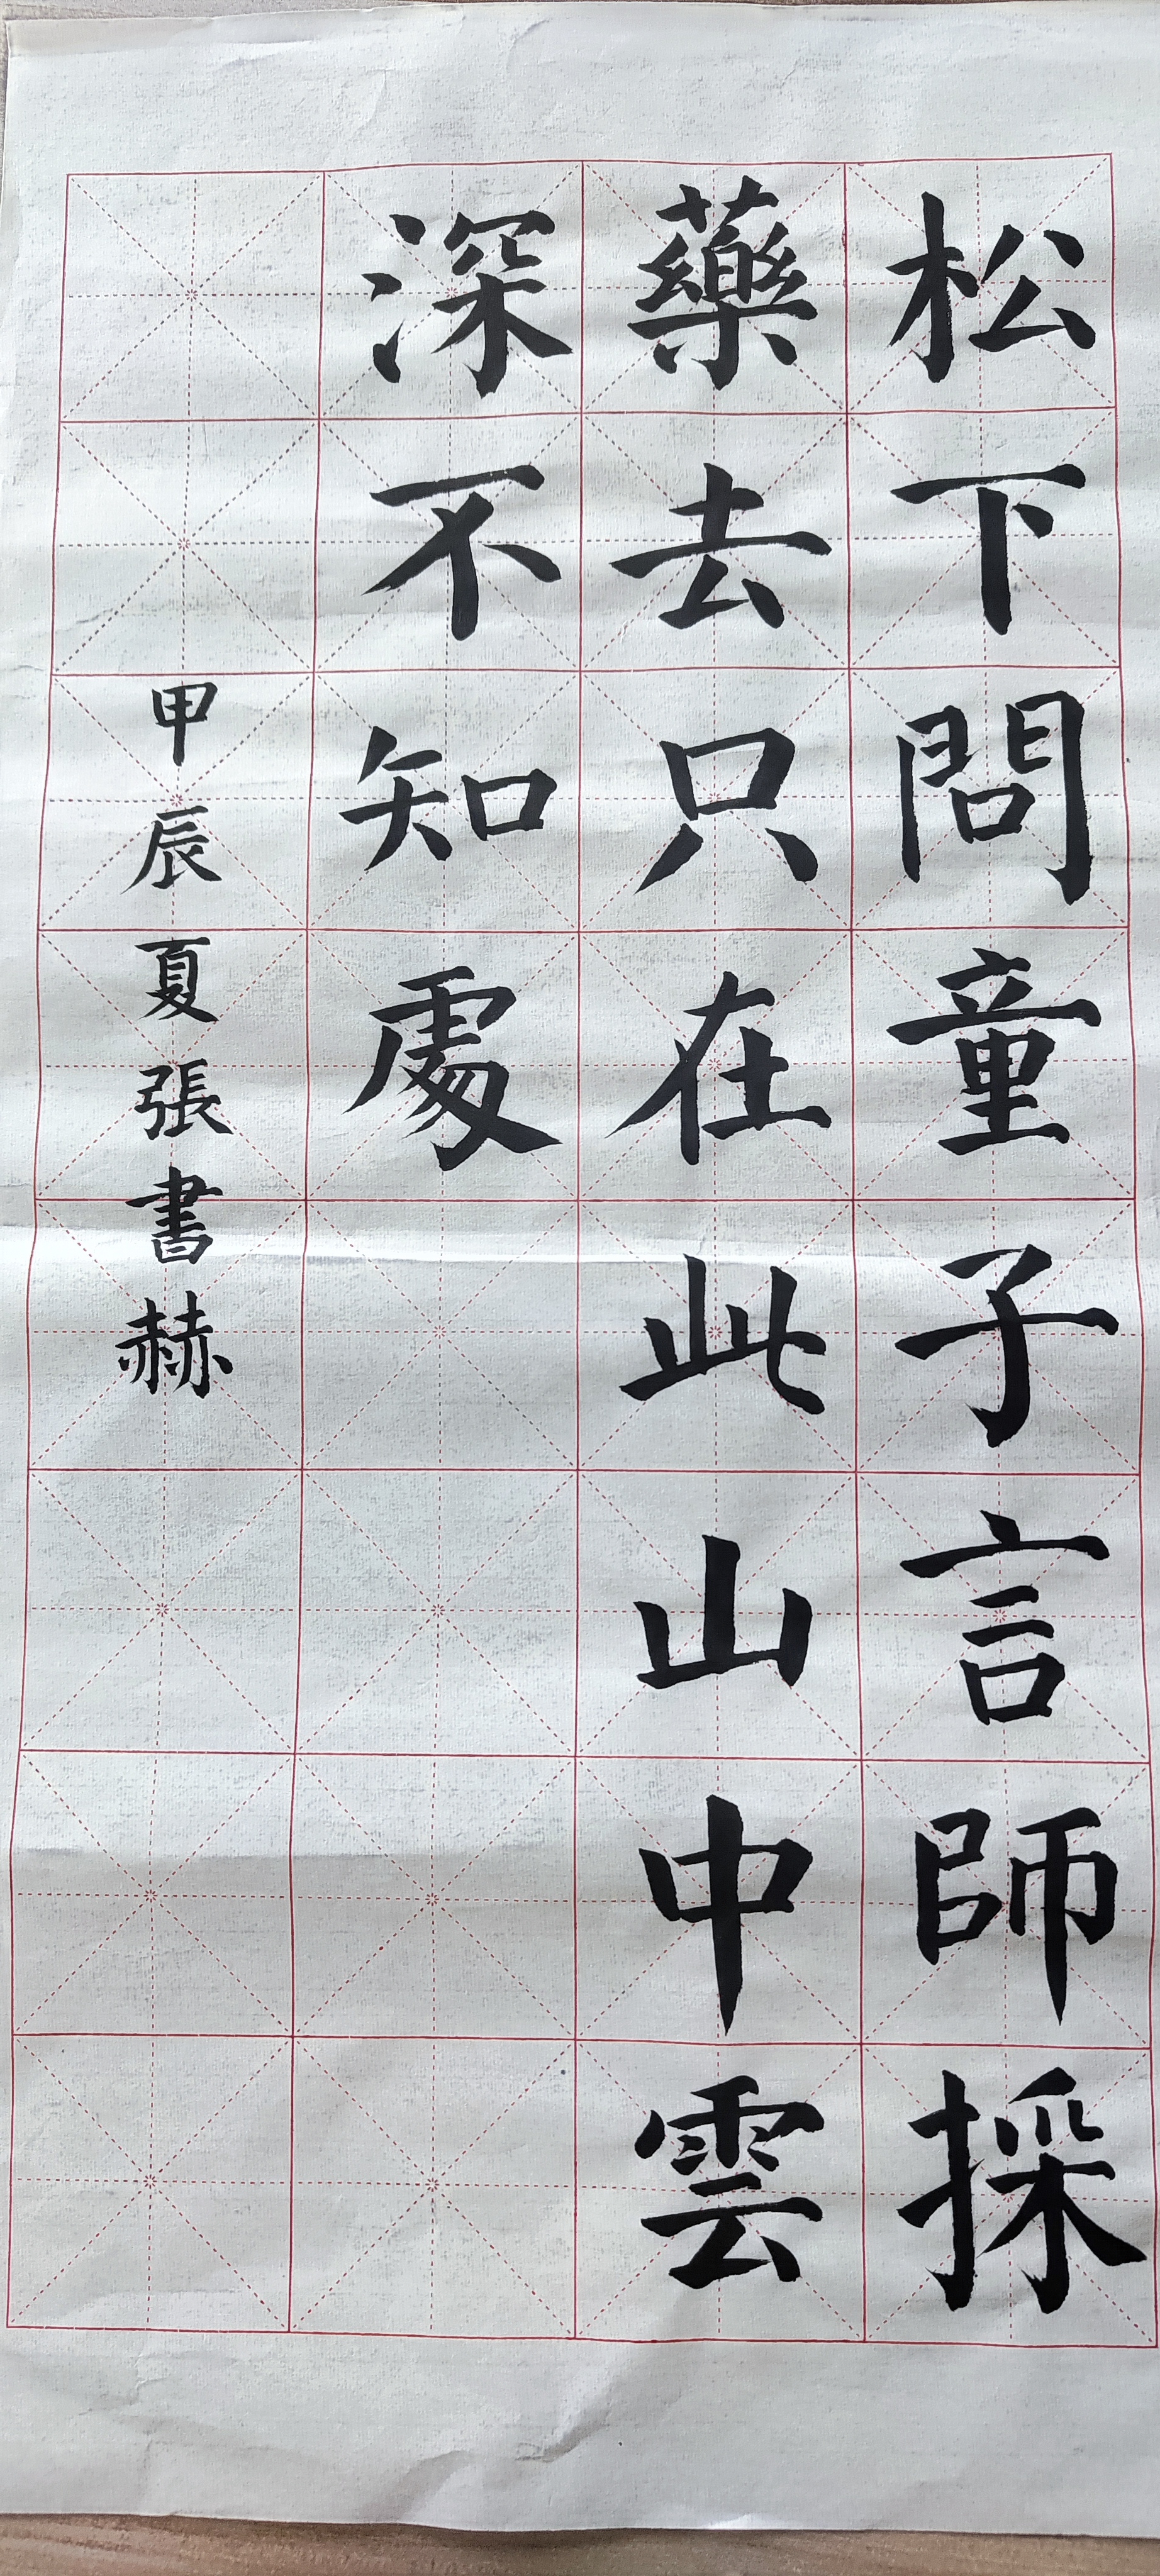 松下問童子言師採
藥去只在此山中雲
深不知處
甲辰夏張書赫